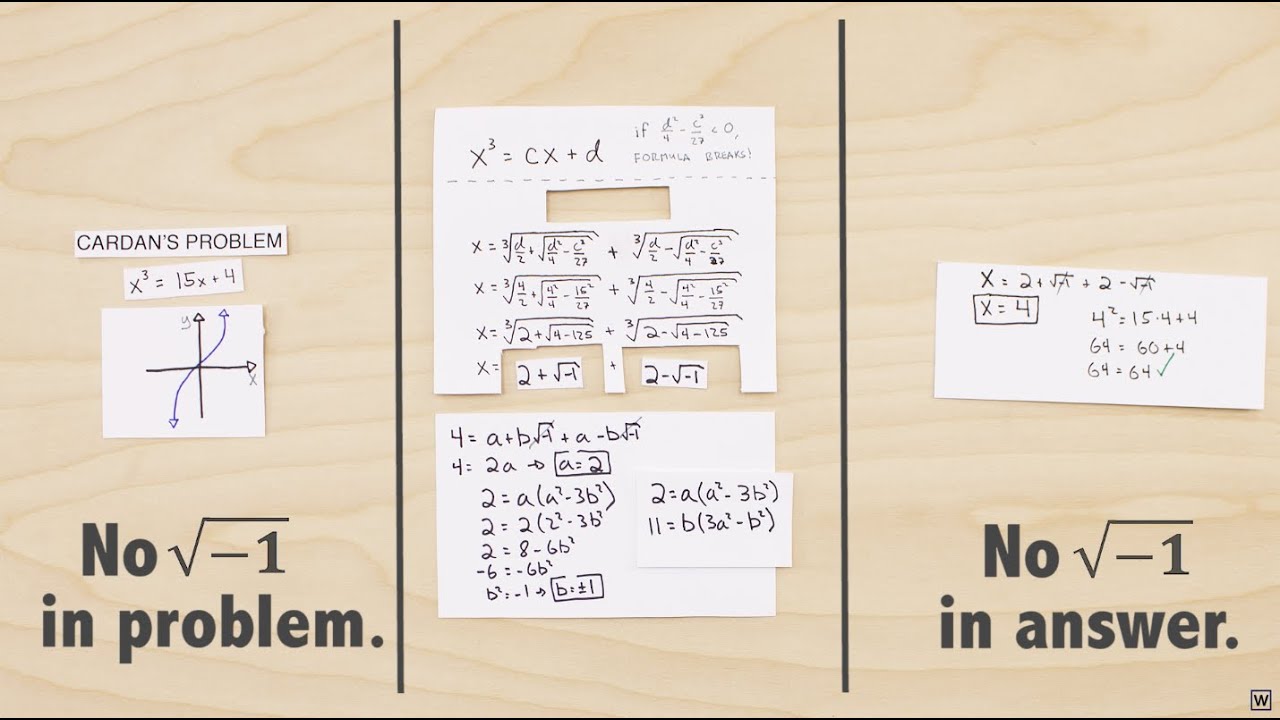 CARDAN'S PROBLEM
x³ = 15x + 4
y
x
No √−1
in problem.
x³ = cx + d
if d²/4 − c³/27 < 0,
FORMULA BREAKS!
x = ∛(d/2 + √(d²/4 − c³/27)) + ∛(d/2 − √(d²/4 − c³/27))
x = ∛(4/2 + √(4²/4 − 15³/27)) + ∛(4/2 − √(4²/4 − 15³/27))
x = ∛(2 + √(4 − 125)) + ∛(2 − √(4 − 125))
x = 2 + √−1 + 2 − √−1
4 = a + b√−1 + a − b√−1
4 = 2a → a = 2
2 = a(a² − 3b²)
2 = 2(2² − 3b²
2 = 8 − 6b²
−6 = −6b²
b² = −1 → b = ±1
2 = a(a² − 3b²)
11 = b(3a² − b²)
x = 2 + √−1 + 2 − √−1
x = 4
4² = 15·4 + 4
64 = 60 + 4
64 = 64 ✓
No √−1
in answer.
W